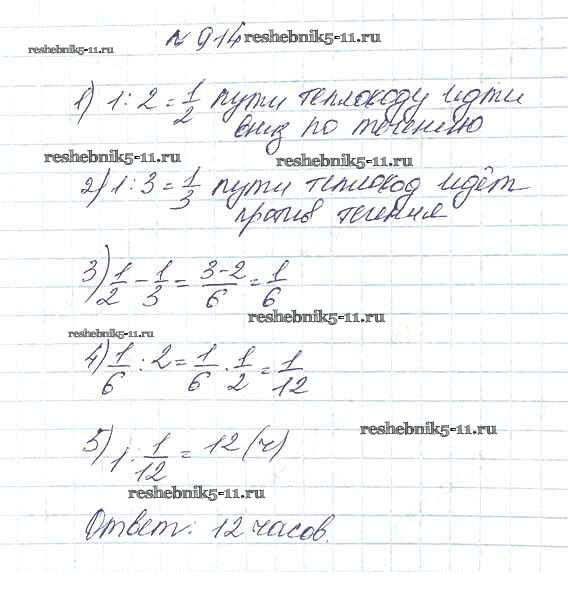 № 914 reshebnik5-11.ru
reshebnik5-11.ru
1) 1 : 2 = 1/2 пути теплоходу идти
вниз по течению
reshebnik5-11.ru reshebnik5-11.ru
2) 1 : 3 = 1/3 пути теплоход идёт
против течения
3) 1/2 - 1/3 = (3-2)/6 = 1/6
reshebnik5-11.ru
reshebnik5-11.ru
4) 1/6 : 2 = 1/6 · 1/2 = 1/12
reshebnik5-11.ru
5) 1 : 1/12 = 12 (ч)
reshebnik5-11.ru
Ответ: 12 часов.